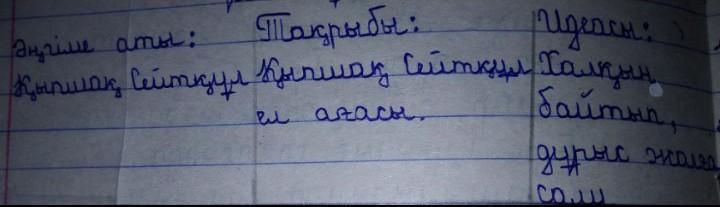 Әңгіме аты: Тақрыбы: Идеасы:
Қыпшақ Сейтқұл Қыпшақ Сейтқұл Халқын
ел ағасы. байтып,
дұрыс жолға
салу